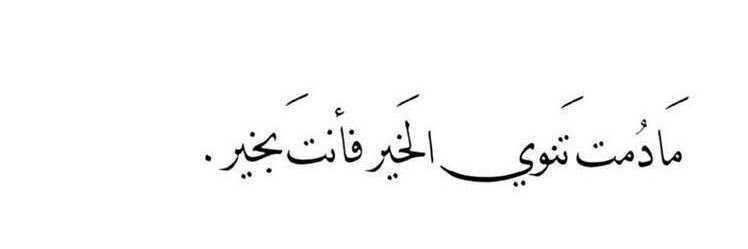 مَادُمت تَنوي الخَير فأنتَ بخير .